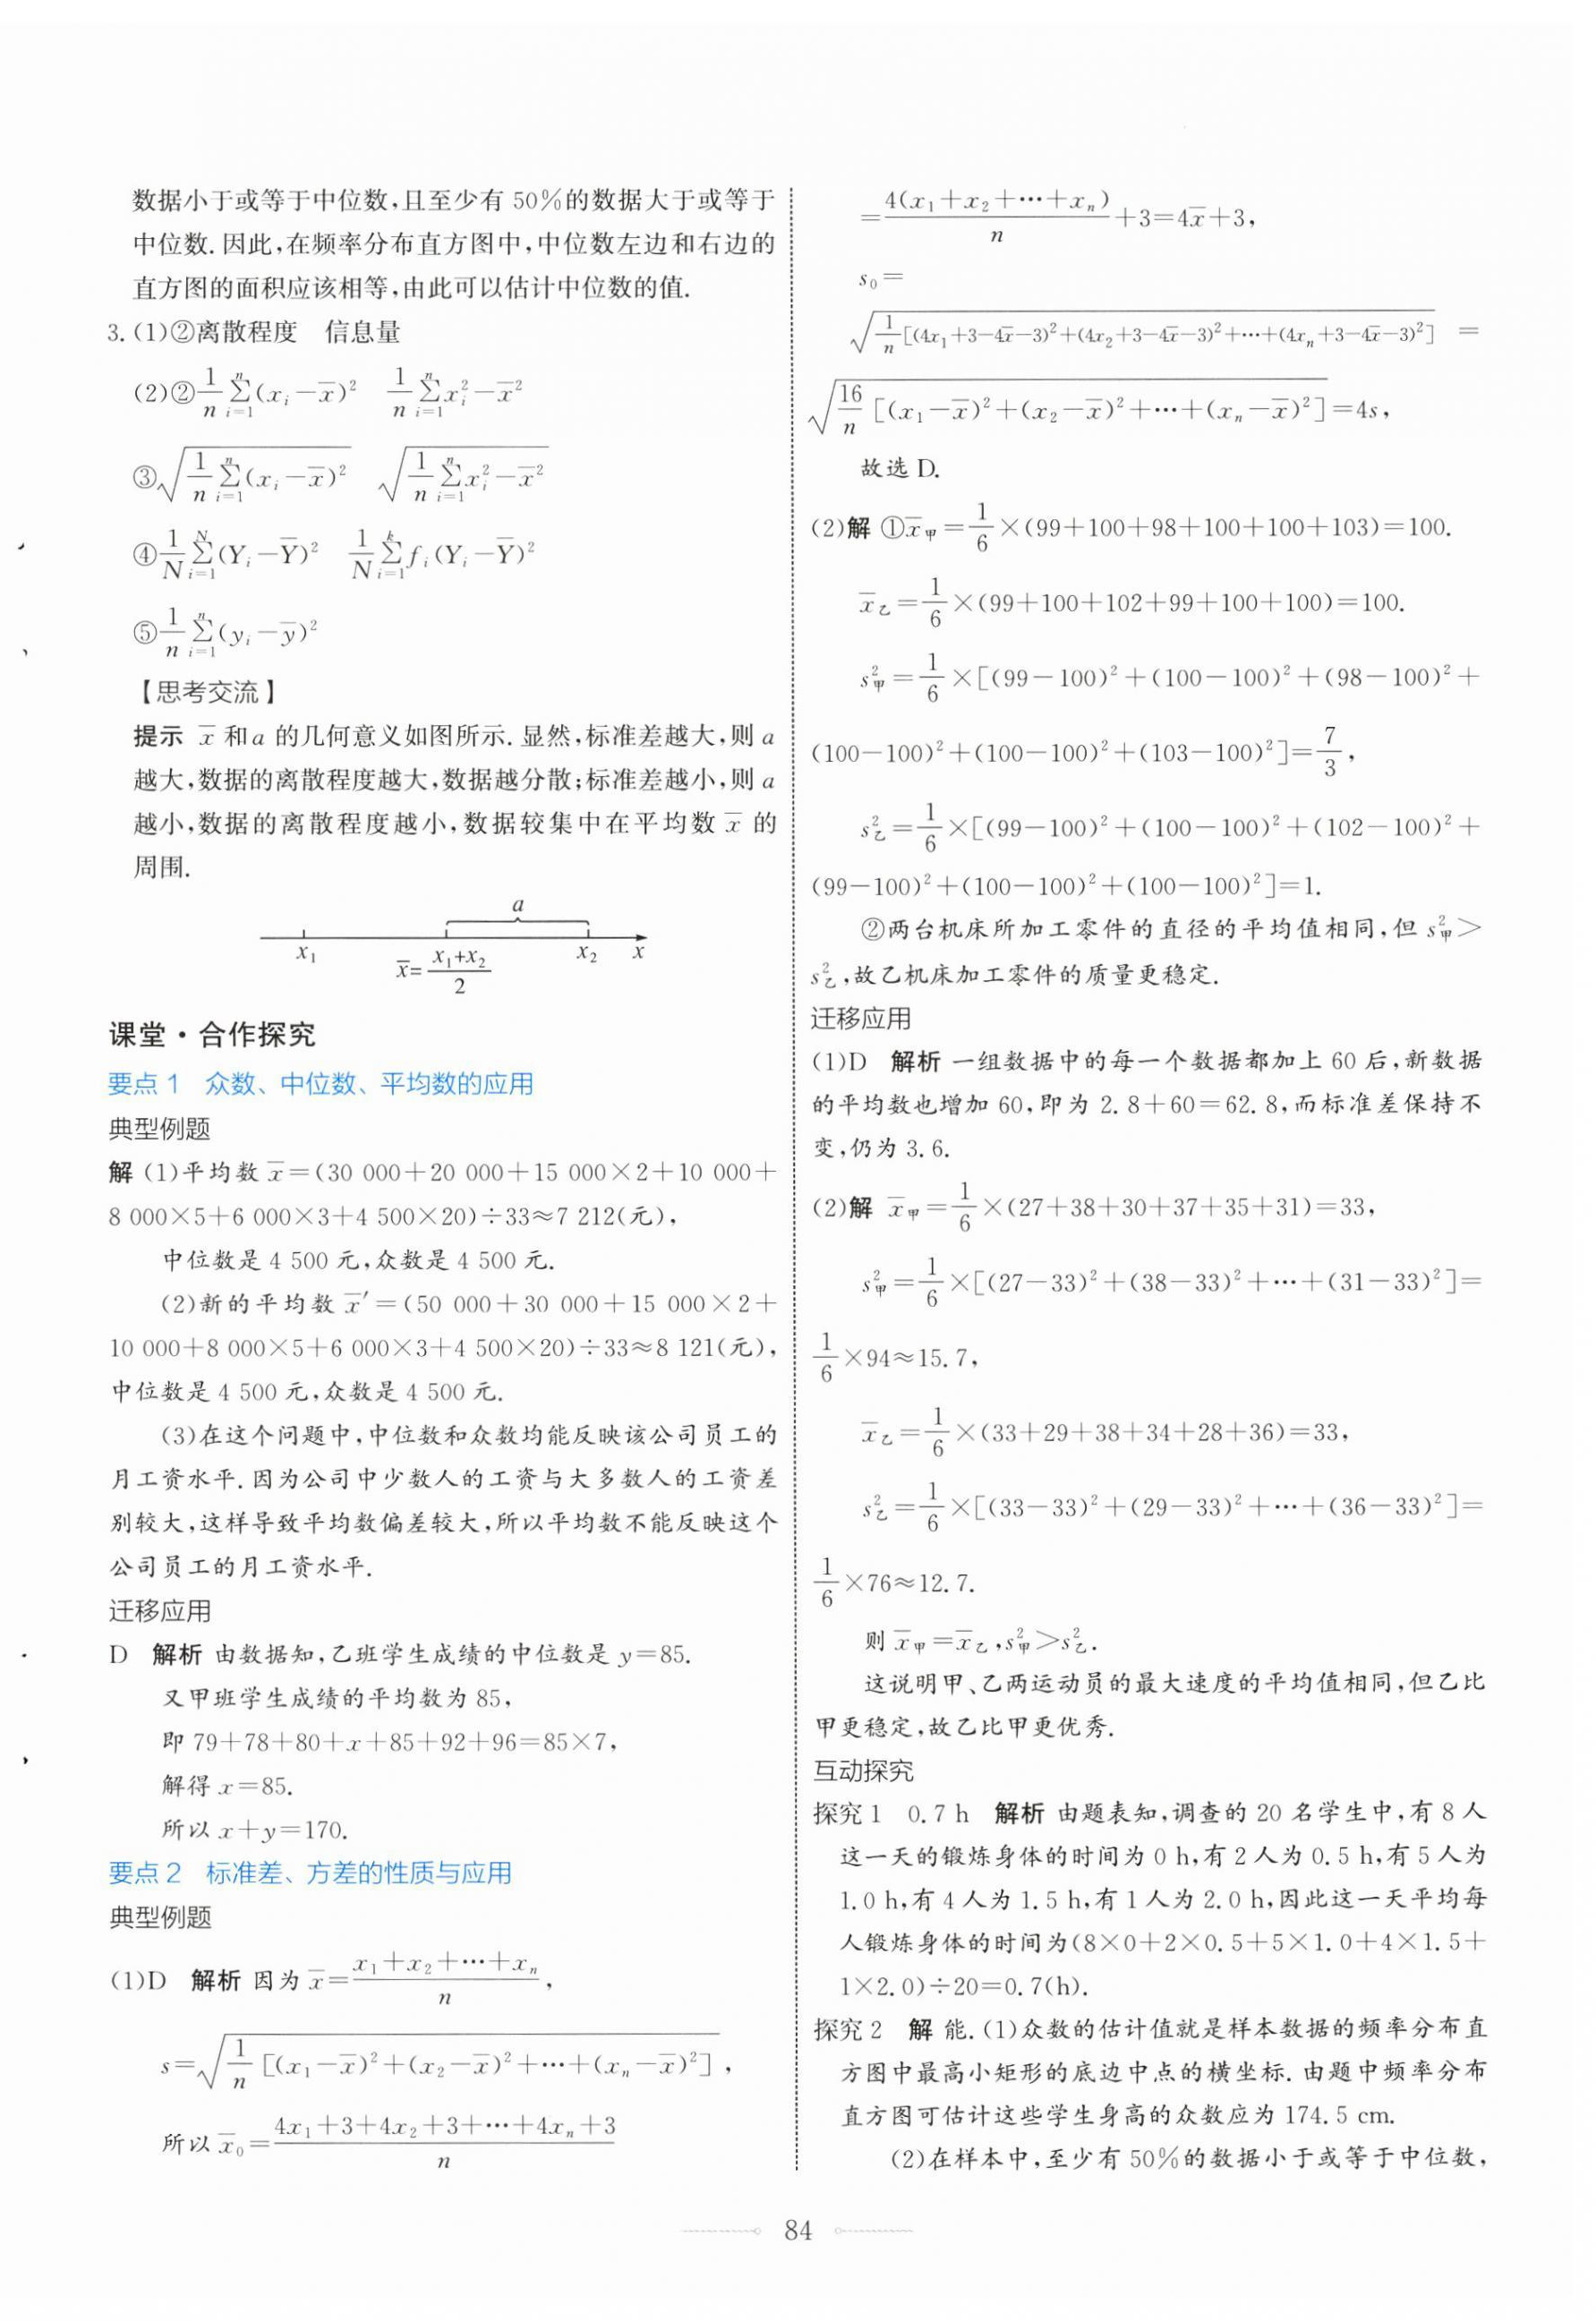 数据小于或等于中位数,且至少有 50%的数据大于或等于
中位数.因此,在频率分布直方图中,中位数左边和右边的
直方图的面积应该相等,由此可以估计中位数的值.
3.(1)②离散程度 信息量
(2)②$\frac{1}{n}\sum_{i=1}^{n}(x_i-\overline{x})^2$ $\frac{1}{n}\sum_{i=1}^{n}x_i^2-\overline{x}^2$
③$\sqrt{\frac{1}{n}\sum_{i=1}^{n}(x_i-\overline{x})^2}$ $\sqrt{\frac{1}{n}\sum_{i=1}^{n}x_i^2-\overline{x}^2}$
④$\frac{1}{N}\sum_{i=1}^{N}(Y_i-\overline{Y})^2$ $\frac{1}{N}\sum_{i=1}^{k}f_i(Y_i-\overline{Y})^2$
⑤$\frac{1}{n}\sum_{i=1}^{n}(y_i-\overline{y})^2$
【思考交流】
提示 $\overline{x}$ 和 a 的几何意义如图所示.显然,标准差越大,则 a
越大,数据的离散程度越大,数据越分散;标准差越小,则 a
越小,数据的离散程度越小,数据较集中在平均数 $\overline{x}$ 的
周围.
a
$x_1$ $\overline{x}=\frac{x_1+x_2}{2}$ $x_2$ x
课堂·合作探究
要点 1 众数、中位数、平均数的应用
典型例题
解 (1)平均数 $\overline{x}$=(30 000+20 000+15 000×2+10 000+
8 000×5+6 000×3+4 500×20)÷33≈7 212(元),
中位数是 4 500 元,众数是 4 500 元.
(2)新的平均数 $\overline{x}'$=(50 000+30 000+15 000×2+
10 000+8 000×5+6 000×3+4 500×20)÷33≈8 121(元),
中位数是 4 500 元,众数是 4 500 元.
(3)在这个问题中,中位数和众数均能反映该公司员工的
月工资水平.因为公司中少数人的工资与大多数人的工资差
别较大,这样导致平均数偏差较大,所以平均数不能反映这个
公司员工的月工资水平.
迁移应用
D 解析 由数据知,乙班学生成绩的中位数是 y=85.
又甲班学生成绩的平均数为 85,
即 79+78+80+x+85+92+96=85×7,
解得 x=85.
所以 x+y=170.
要点 2 标准差、方差的性质与应用
典型例题
(1)D 解析 因为 $\overline{x}=\frac{x_1+x_2+\cdots+x_n}{n}$,
$s=\sqrt{\frac{1}{n}[(x_1-\overline{x})^2+(x_2-\overline{x})^2+\cdots+(x_n-\overline{x})^2]}$,
所以 $\overline{x}_0=\frac{4x_1+3+4x_2+3+\cdots+4x_n+3}{n}$
$=\frac{4(x_1+x_2+\cdots+x_n)}{n}+3=4\overline{x}+3$,
$s_0=$
$\sqrt{\frac{1}{n}[(4x_1+3-4\overline{x}-3)^2+(4x_2+3-4\overline{x}-3)^2+\cdots+(4x_n+3-4\overline{x}-3)^2]}$ =
$\sqrt{\frac{16}{n}[(x_1-\overline{x})^2+(x_2-\overline{x})^2+\cdots+(x_n-\overline{x})^2]}=4s$,
故选 D.
(2)解 ①$\overline{x}_甲=\frac{1}{6}$×(99+100+98+100+100+103)=100.
$\overline{x}_乙=\frac{1}{6}$×(99+100+102+99+100+100)=100.
$s_甲^2=\frac{1}{6}$×[(99-100)²+(100-100)²+(98-100)²+
(100-100)²+(100-100)²+(103-100)²]=$\frac{7}{3}$,
$s_乙^2=\frac{1}{6}$×[(99-100)²+(100-100)²+(102-100)²+
(99-100)²+(100-100)²+(100-100)²]=1.
②两台机床所加工零件的直径的平均值相同,但 $s_甲^2$>
$s_乙^2$,故乙机床加工零件的质量更稳定.
迁移应用
(1)D 解析 一组数据中的每一个数据都加上 60 后,新数据
的平均数也增加 60,即为 2.8+60=62.8,而标准差保持不
变,仍为 3.6.
(2)解 $\overline{x}_甲=\frac{1}{6}$×(27+38+30+37+35+31)=33,
$s_甲^2=\frac{1}{6}$×[(27-33)²+(38-33)²+…+(31-33)²]=
$\frac{1}{6}$×94≈15.7,
$\overline{x}_乙=\frac{1}{6}$×(33+29+38+34+28+36)=33,
$s_乙^2=\frac{1}{6}$×[(33-33)²+(29-33)²+…+(36-33)²]=
$\frac{1}{6}$×76≈12.7.
则 $\overline{x}_甲=\overline{x}_乙$,$s_甲^2>s_乙^2$.
这说明甲、乙两运动员的最大速度的平均值相同,但乙比
甲更稳定,故乙比甲更优秀.
互动探究
探究 1 0.7 h 解析 由题表知,调查的 20 名学生中,有 8 人
这一天的锻炼身体的时间为 0 h,有 2 人为 0.5 h,有 5 人为
1.0 h,有 4 人为 1.5 h,有 1 人为 2.0 h,因此这一天平均每
人锻炼身体的时间为(8×0+2×0.5+5×1.0+4×1.5+
1×2.0)÷20=0.7(h).
探究 2 解 能.(1)众数的估计值就是样本数据的频率分布直
方图中最高小矩形的底边中点的横坐标.由题中频率分布
直方图可估计这些学生身高的众数应为 174.5 cm.
(2)在样本中,至少有 50%的数据小于或等于中位数,
84